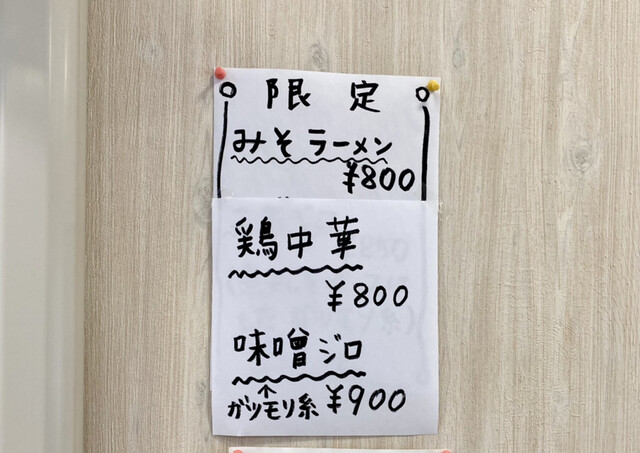 限定
みそラーメン
¥800
鶏中華
¥800
味噌ジロ
↑
ガツモリ系 ¥900